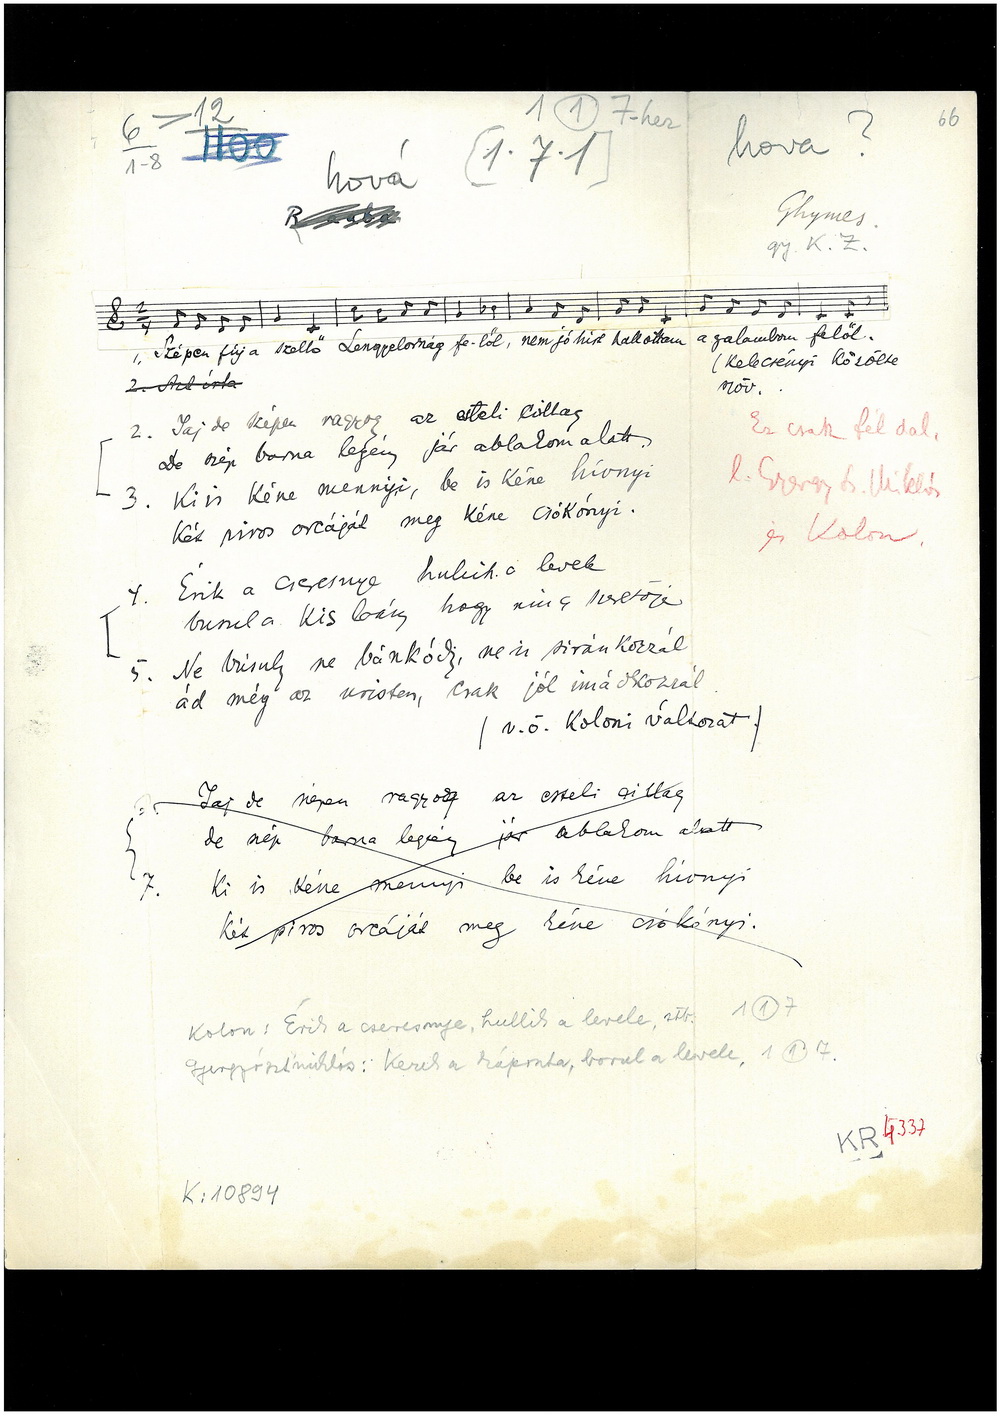 6 12
1-8
1100
1 1 7-hez
66
hová
[1·7·1]
hova?
Ghymes.
gy. K. Z.
1. Szépen fúj a szellő Lengyelország fe-lől, nem jó hírt hallottam a galambom felől.
(Kelecsényi közölte
szöv.
2. Azt írta
2. Jaj de szépen ragyog az esteli csillag
De szép barna legény jár ablakom alatt
3. Ki is kéne mennyi, be is kéne hívnyi
Két piros orcáját meg kéne csókónyi.
Ez csak fél dal,
l. Gyergyó Sz. Miklós
és Kolon.
4. Érik a cseresnye hullik a levele
búsul a kis leány hogy nincs szeretője
5. Ne búsulj ne bánkódj, ne is siránkozzál
ád még az uristen, csak jól imádkozzál.
(v.ö. Koloni változat)
Jaj de szépen ragyog az esteli csillag
de szép barna legény jár ablakom alatt
7. Ki is kéne mennyi be is kéne hívnyi
Két piros orcáját meg kéne csókónyi.
Kolon: Érik a cseresnye, hullik a levele, stb. 1 1 7
Gyergyószentmiklós: Kerek a káposzta, borul a levele, 1 1 7.
KR 4337
K:10894